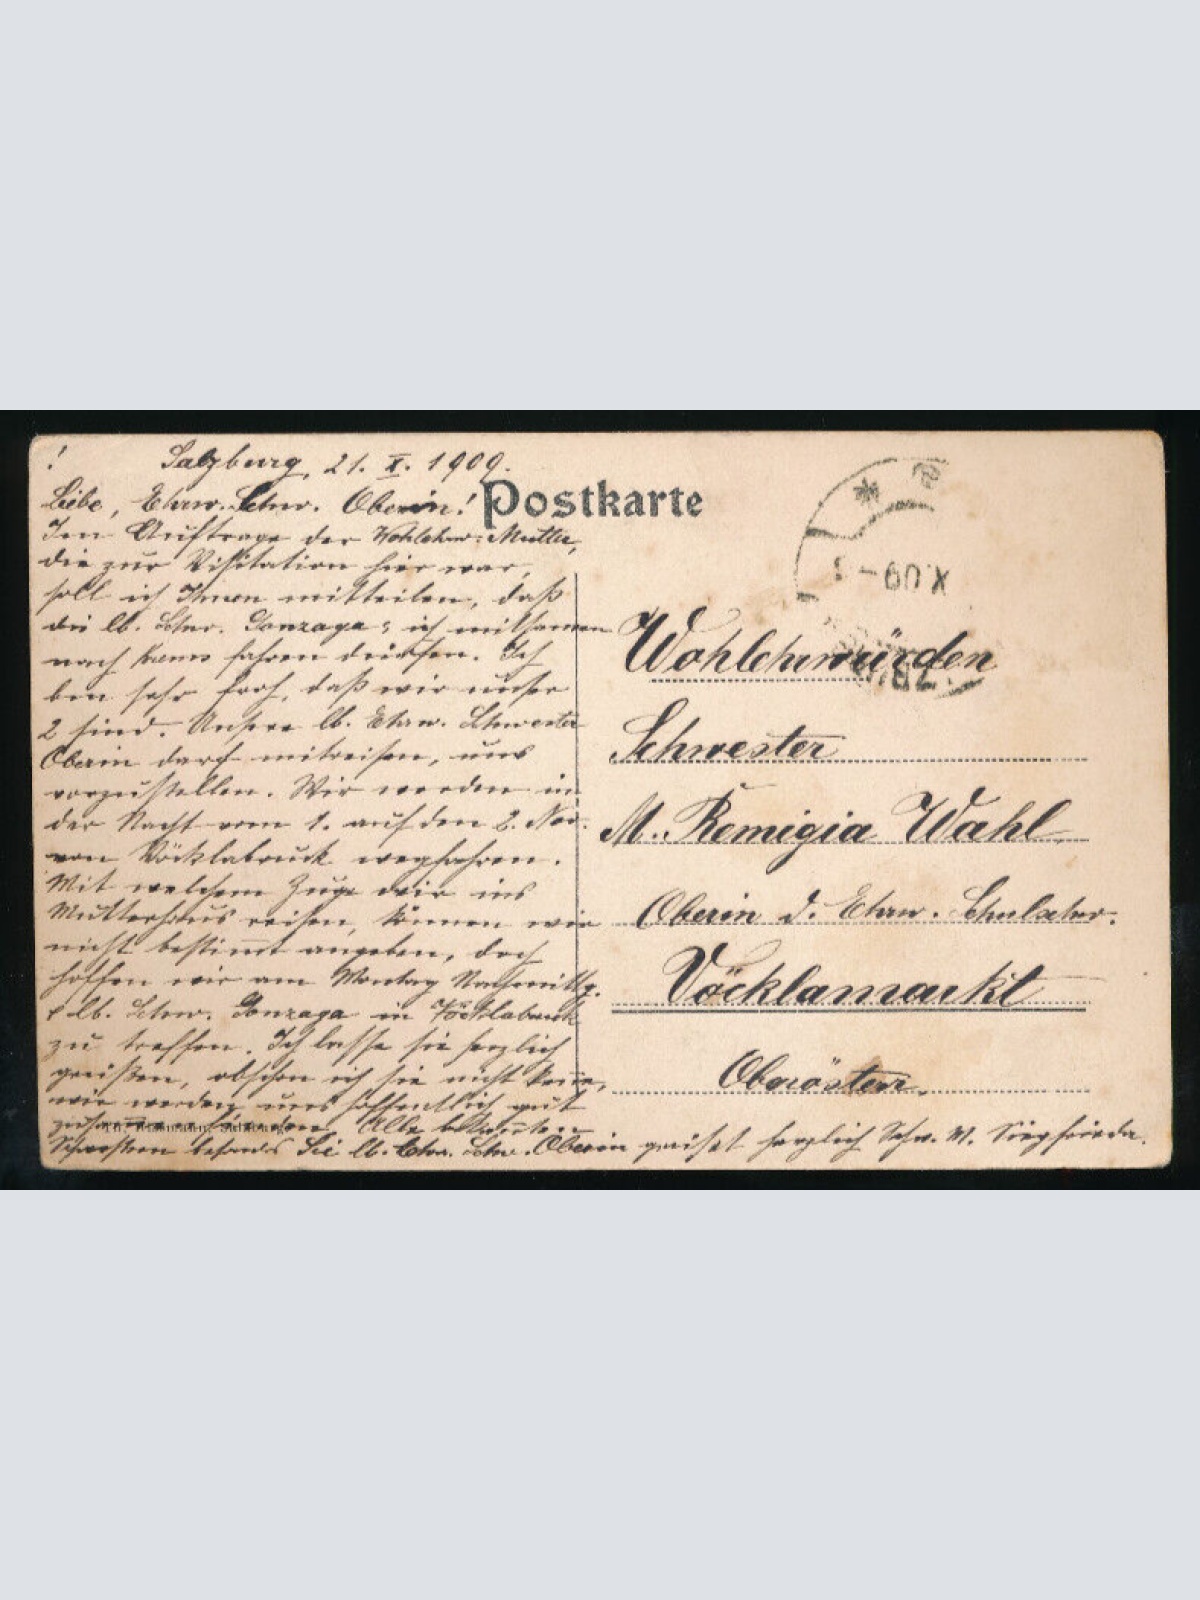 !
Salzburg, 21. X. 1909.
Liebe, Ehrw. Schw. Oberin!
Im Auftrage der Wohlehrw. Mutter,
die zur Visitation hier war,
soll ich Ihnen mitteilen, daß
die lb. Schw. Gonzaga u. ich mitsamen
nach Krems fahren dürfen. Ich
bin sehr froh, daß wir unser
2 sind. Unsere lb. Ehrw. Schwester
Oberin darf mitreisen, uns
vorzustellen. Wir werden in
der Nacht vom 1. auf den 2. Nov.
von Vöcklabruck wegfahren.
Mit welchem Zuge wir ins
Mutterhaus reisen, können wir
nicht bestimmt angeben, doch
hoffen wir am Montag Nachmittg.
lb. Schw. Gonzaga in Vöcklabruck
zu treffen. Ich lasse sie herzlich
grüßen, obschon ich sie nicht kenne,
wir werden uns hoffentlich gut
Alle bekannten
Schwestern besonds Sie lb. Ehrw. Schw. Oberin grüßt herzlich Schw. M. Siegfrieda.
Postkarte
X 09
Wohlehrwürden
Schwester
M. Remigia Wahl
Oberin d. Ehrw. Schulschw.
Vöcklamarkt
Oberösterr.